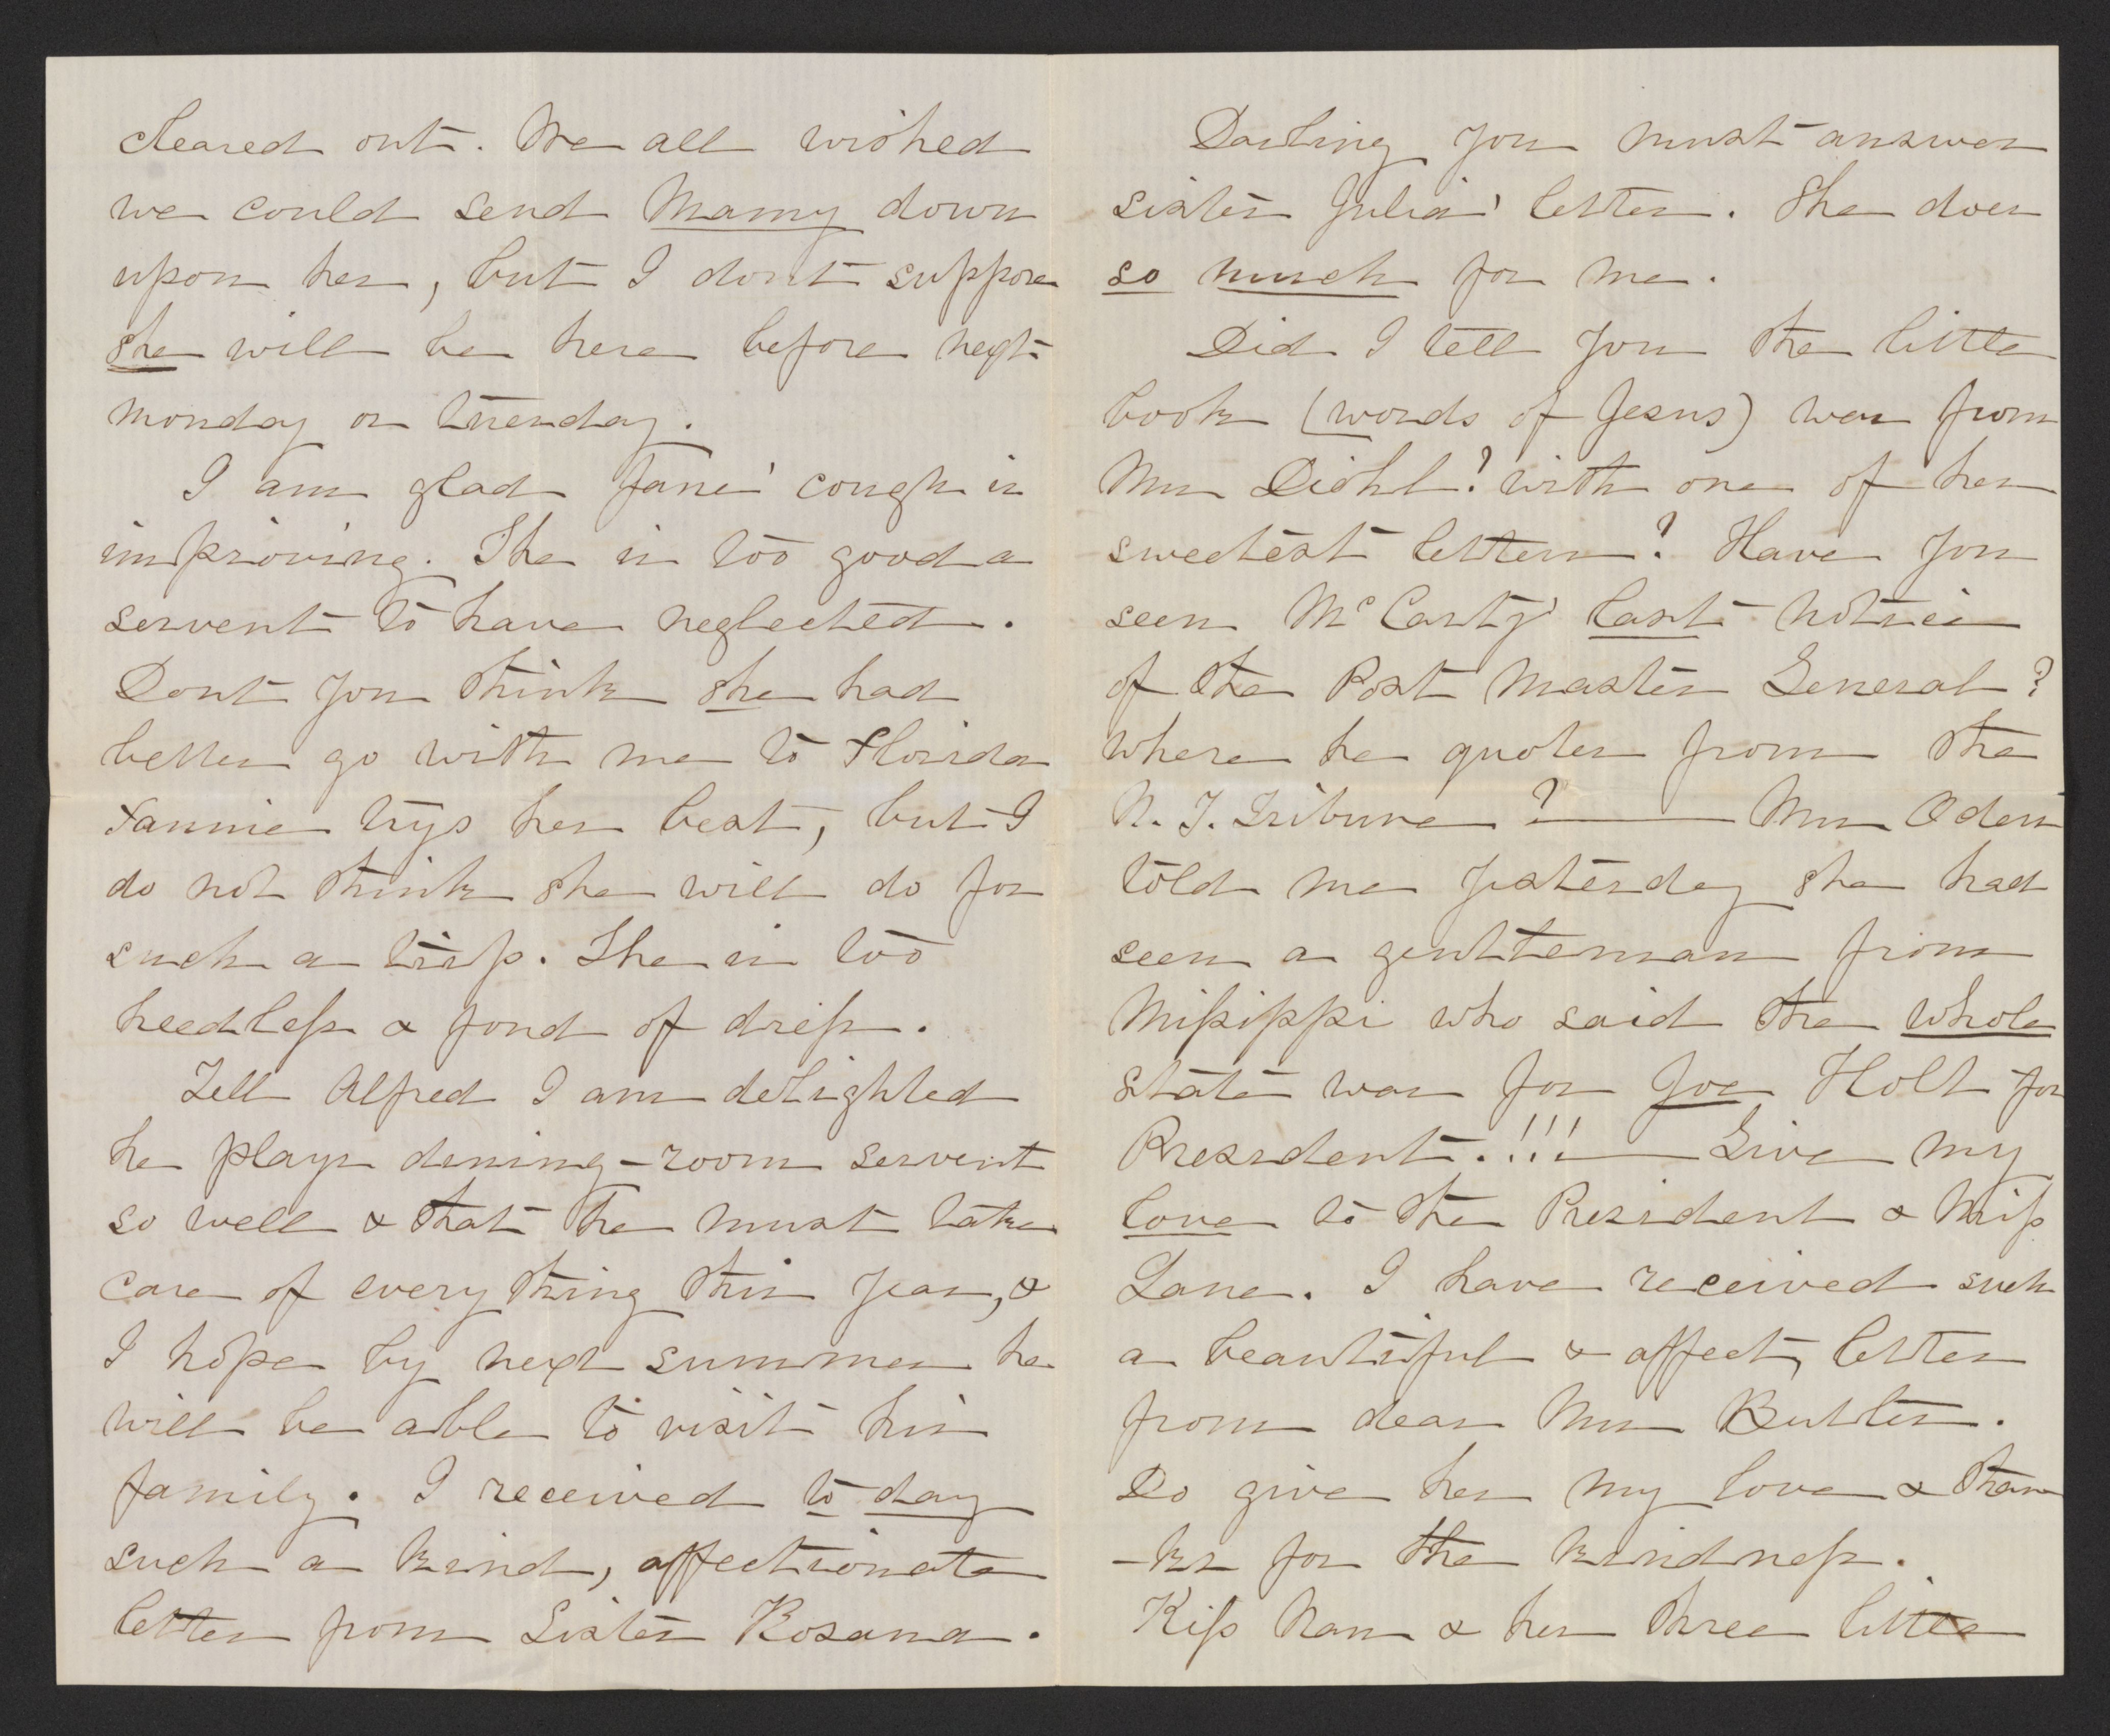 cleared out. We all wished
we could send Mamy down
upon her, but I dont suppose
she will be here before next
monday or tuesday.
I am glad Janes' cough is
improving. She is too good a
servent to have neglected.
Dont you think she had
better go with me to Florida
Fannie trys her best, but I
do not think she will do for
such a trip. She is too
heedless & fond of dress.
Tell Alfred I am delighted
he plays dining-room servent
so well & that he must take
care of every thing this year, &
I hope by next summer he
will be able to visit his
family. I received to day
such a kind, affectionate
letter from Sister Rosana.
Darling you must answer
sister Julias' letter. She does
so much for me.
Did I tell you the little
book (words of Jesus) was from
Mrs Diehl? with one of her
sweetest letters? Have you
seen McCartys' last notice
of the Post Master General?
where he quotes from the
N. Y. Tribune? — Mrs Odens
told me yesterday she had
seen a gentleman from
Missippi who said the whole
state was for Joe Holt for
President.!!! — Give my
love to the President & Miss
Lane. I have received such
a beautiful & affect, letter
from dear Mrs Butler.
Do give her my love & than
-ks for the kindness.
Kiss Nan & her three little